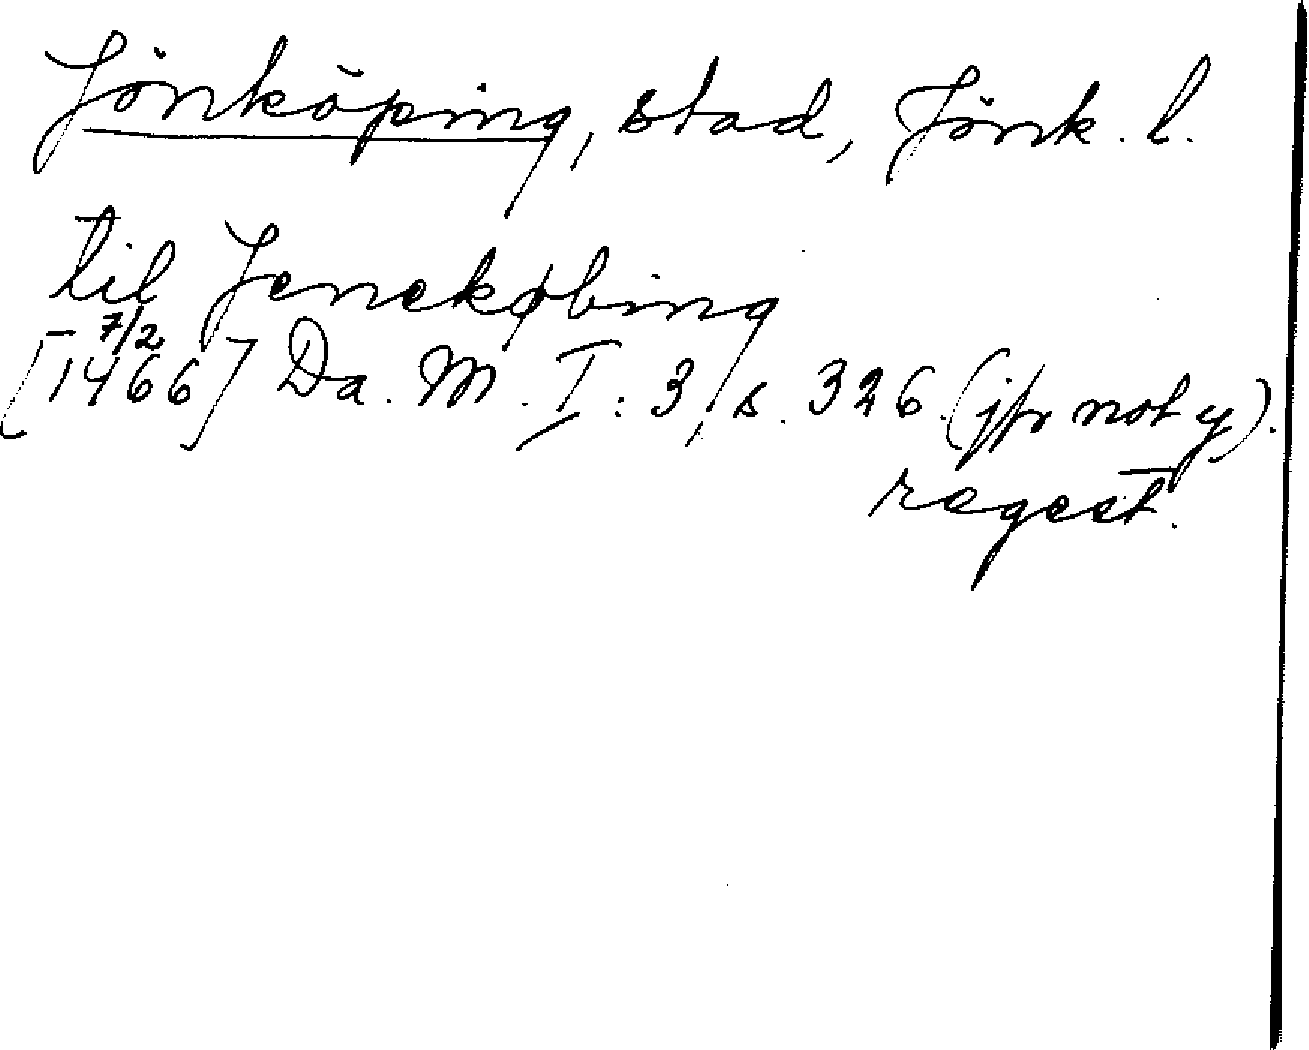 Jönköping, stad, Jönk. l.
til Jenekøbing
[– 7/2 1466] Da. M. I: 3, s. 326. (jfr not y).
regest.